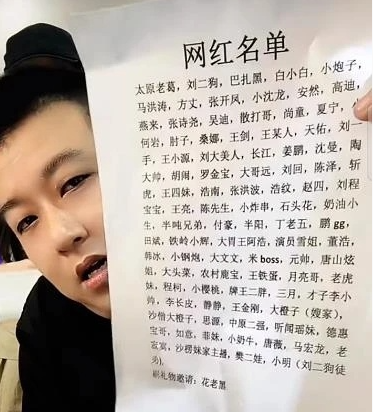 网红名单
太原老葛，刘二狗，巴扎黑，白小白，小炮子，
马洪涛，方丈，张开凤，小沈龙，安然，高迪，
燕来，张诗尧，吴迪，散打哥，尚童，夏宁，
何岩，肘子，桑娜，王剑，王某人，天佑，刘一
手，王小源，刘大美人，长江，姜鹏，沈曼，陶
大帅，胡闹，罗金宝，大哥远，刘回，陈泽，斩
虎，王四妹，浩南，张洪波，浩纹，赵四，刘程
宝宝，王亮，陈先生，小炸串，石头花，奶油小
生，半吨兄弟，付豪，半阳，丁老五，鹏 gg，
田斌，铁岭小辉，大胃王阿浩，演员雪姐，董浩，
韩冰，小钢炮，大文文，米 boss，元帅，唐山炫
姐，大头菜，农村鹿宝，王铁蛋，月亮哥，老虎
妹，程柯，小樱桃，牌王二胖，三月，才子李小
帅，李长皮，静静，王金刚，大橙子（嫂家），
沙僧大橙子，思源，中原二强，听闻瑶妹，德惠
宝哥，如意，菲妹，小奶牛，唐薇，马宏龙，老
寅寅，沙楞妹家主播，樊二娃，小明（刘二狗徒
刷礼物邀请：花老黑